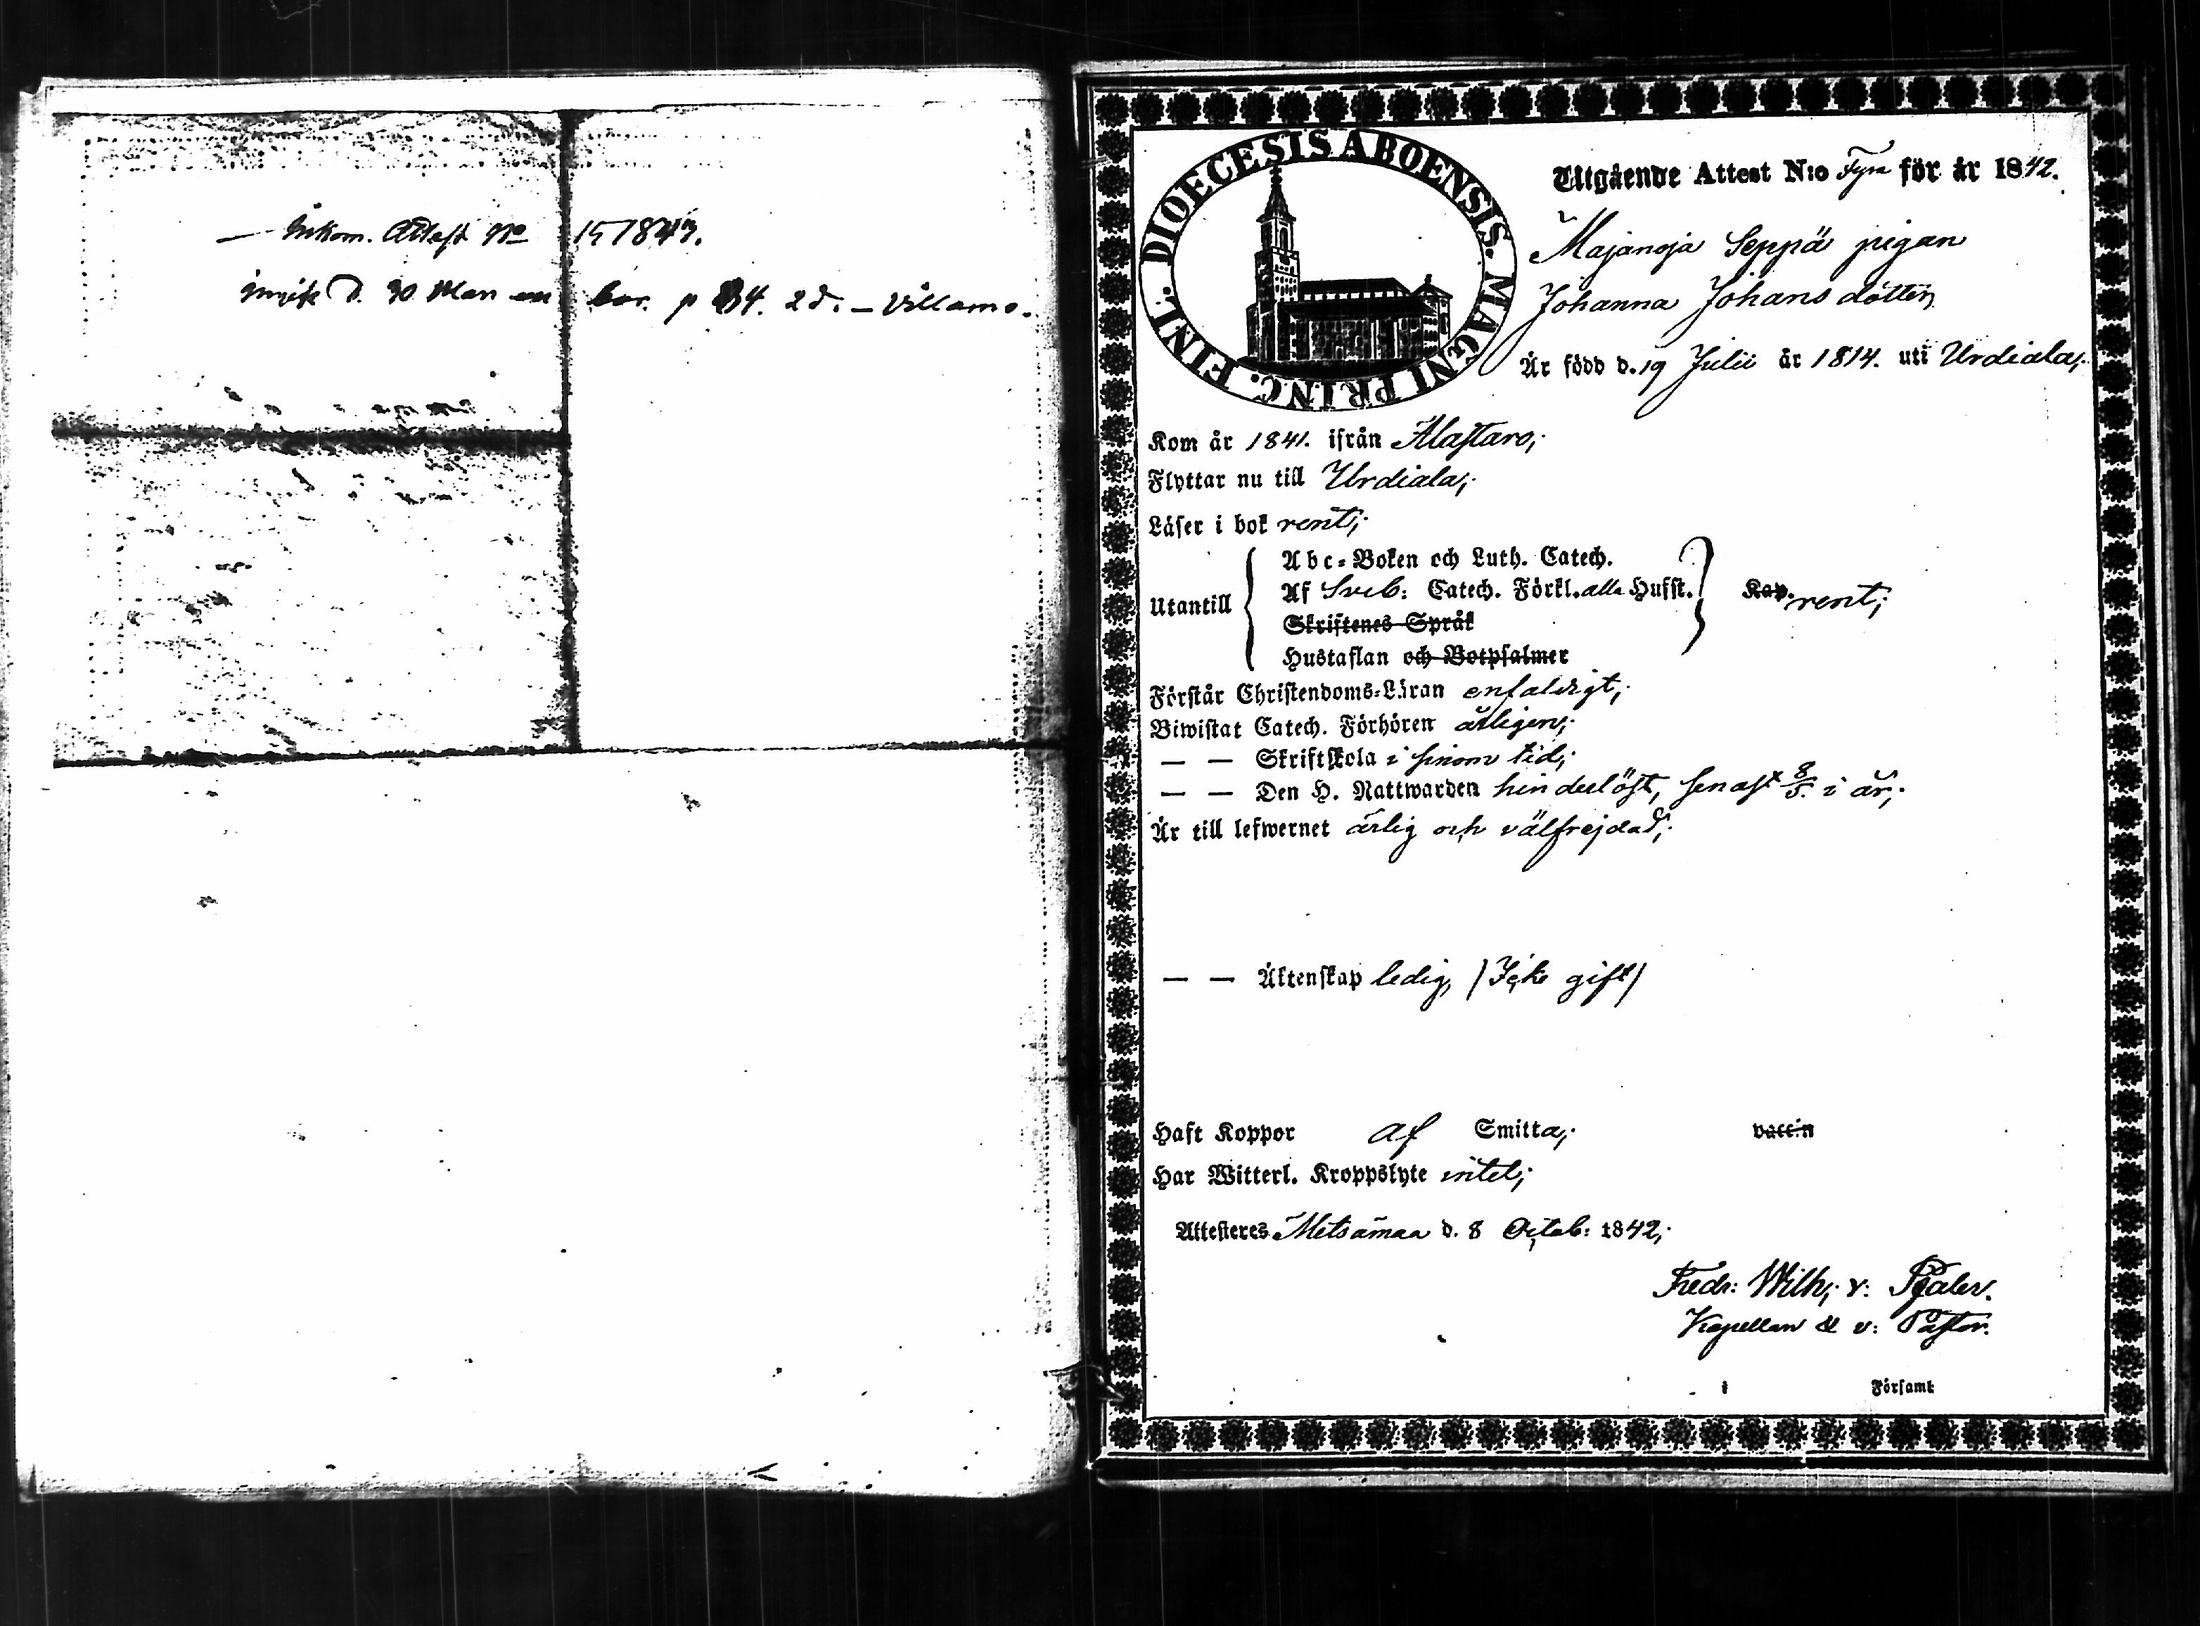 Inkom. Attest No 15 1843.
d. 30 Mars p 84. 2d. – Villamo.
DIOECESIS ABOENSIS. MAGNI PRINC. FINL.
Utgående Attest N:o Fyra för år 1842.
Majanoja Seppä pigan
Johanna Johans dotter,
Är född d. 19 Julii år 1814. uti Urdiala;
Kom år 1841. ifrån Alastaro;
Flyttar nu till Urdiala;
Läser i bok rent;
Utantill
Abc-Boken och Luth. Catech.
Af Sveb: Catech. Förkl. alla Hufst.
Skriftenes Språk
Hustaflan och Botpsalmer
Kap. rent;
Förstår Christendoms-Läran enfaldigt;
Biwistat Catech. Förhören årligen;
— — Skriftskola i sinom tid;
— — Den H. Nattwarden hinderlöst, senast 8/5. i år;
Är till lefwernet ärlig och välfrejdad;
— — Äktenskap ledig, /Icke gift/
Haft Koppor af Smitta; vaccin
Har Witterl. Kroppslyte intet;
Attesteres Metsämaa d. 8 Octob: 1842;
Fredr: Wilh; v: Pfaler.
Kapellan & v: Pastor.
i Församl